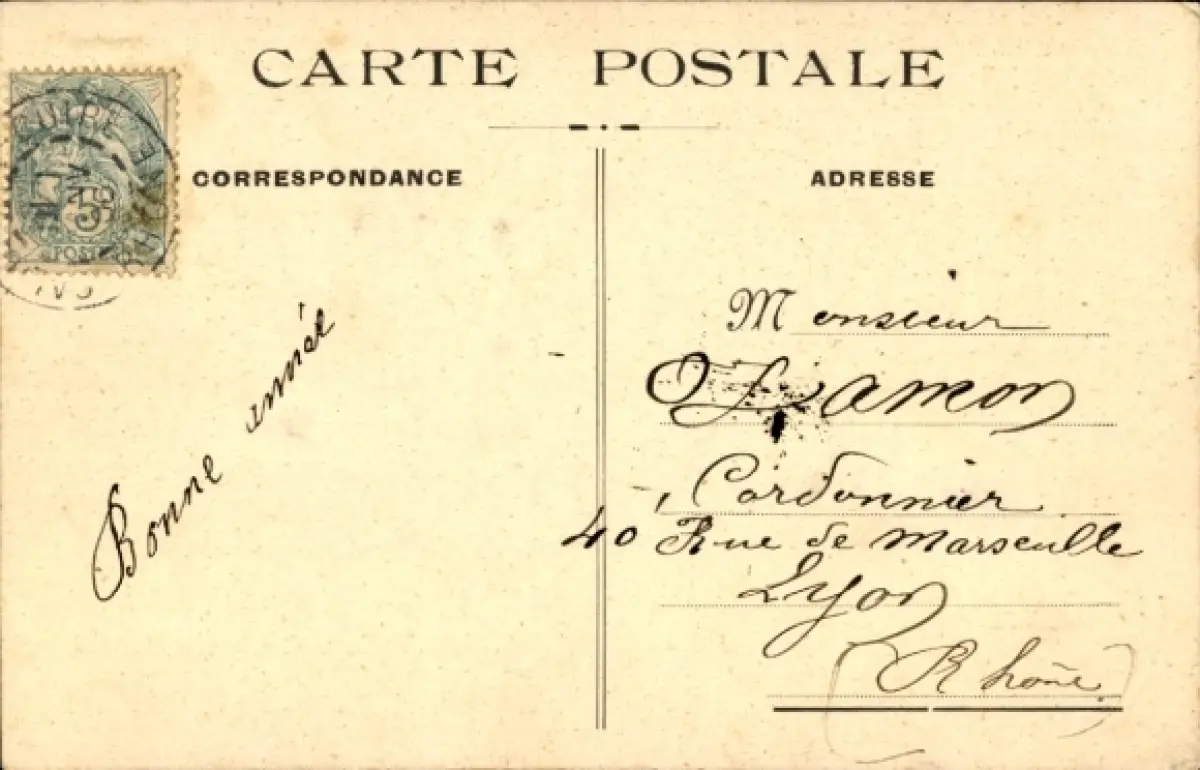 CARTE POSTALE
CORRESPONDANCE
ADRESSE
CUIRE
POSTES
Bonne année
Monsieur
Cordonnier
40 Rue de Marseille
Lyon
(Rhône)